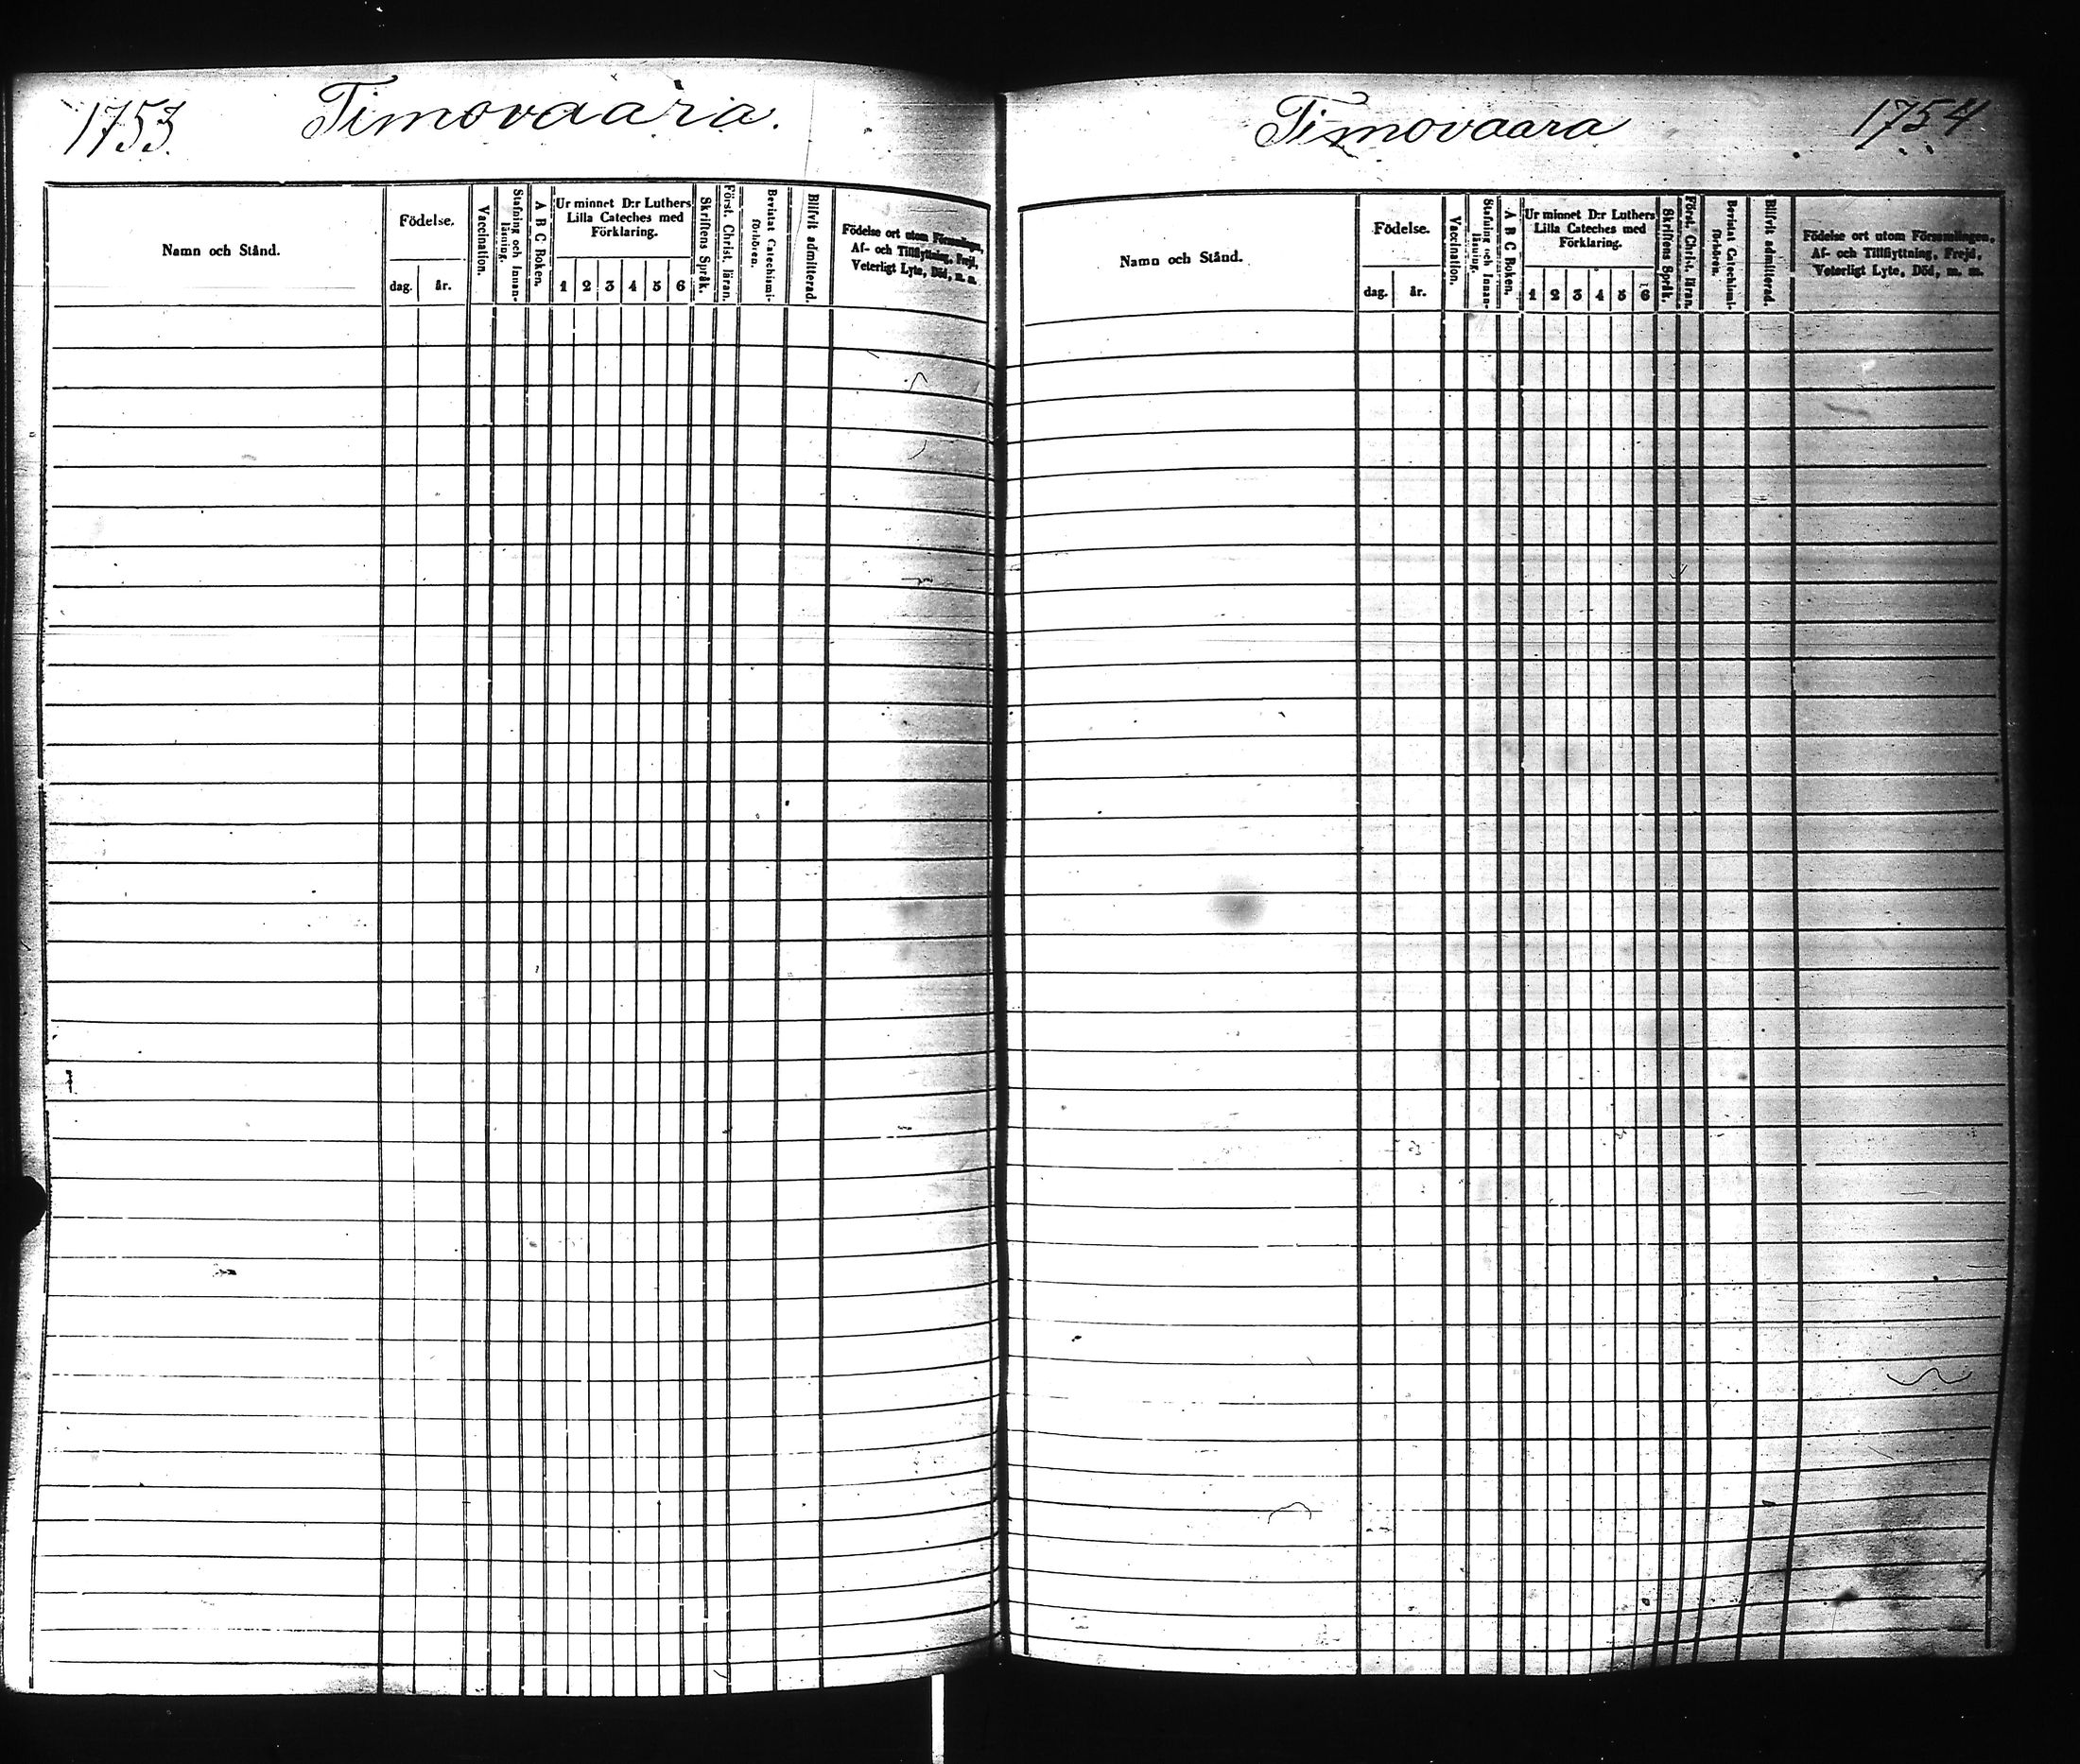 1753. Timovaara.
Namn och Stånd.
Födelse.
dag.
år.
Vaccination.
Stafning och Innan-
läsning.
A B C Boken.
Ur minnet D:r Luthers
Lilla Cateches med
Förklaring.
1 2 3 4 5 6
Skriftens Språk.
Först. Christ. läran.
Bevistat Catechismi-
förhören.
Blifvit admitterad.
Födelse ort utom Församlingen,
Af- och Tillflyttning, Frejd,
Veterligt Lyte, Död, m. m.
Timovaara 1754
Namn och Stånd.
Födelse.
dag.
år.
Vaccination.
Stafning och Innan-
läsning.
A B C Boken.
Ur minnet D:r Luthers
Lilla Cateches med
Förklaring.
1 2 3 4 5 6
Skriftens Språk.
Först. Christ. läran.
Bevistat Catechismi-
förhören.
Blifvit admitterad.
Födelse ort utom Församlingen,
Af- och Tillflyttning, Frejd,
Veterligt Lyte, Död, m. m.